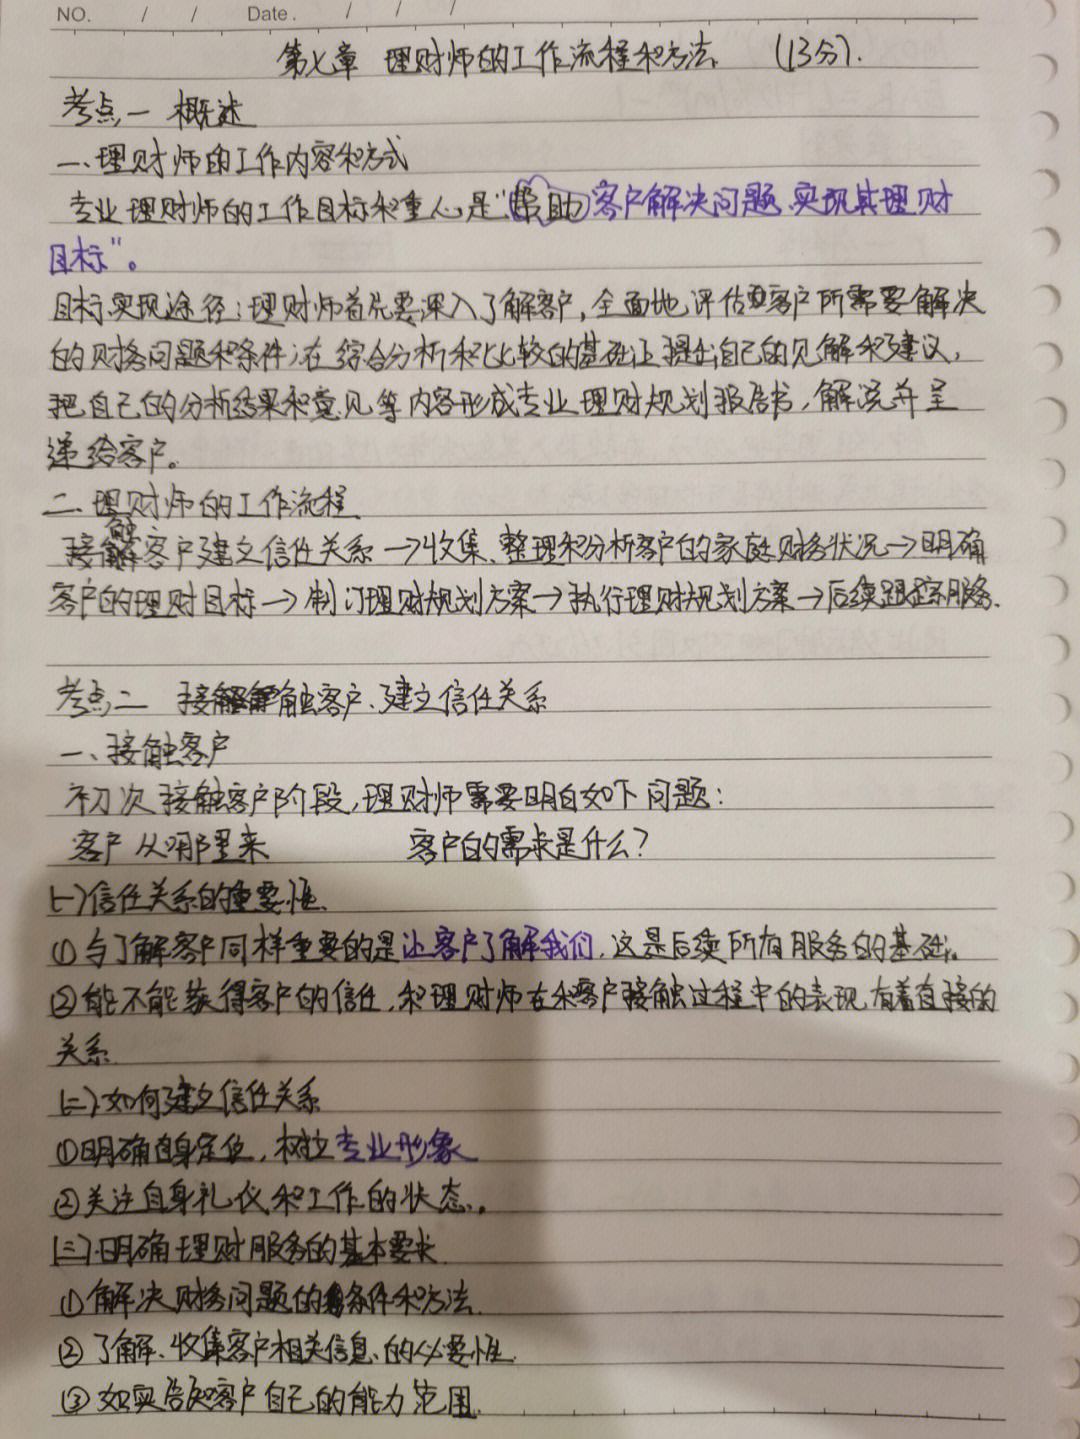 NO. / / Date. / / /
第七章 理财师的工作流程和方法 (13分).
考点一 概述
一、理财师的工作内容和方式
专业理财师的工作目标和重心是"帮助客户解决问题、实现其理财
目标"。
目标实现途径:理财师首先要深入了解客户,全面地评估客户所需要解决
的财务问题和条件;在综合分析和比较的基础上提出自己的见解和建议,
把自己的分析结果和意见等内容形成专业理财规划报告书,解说并呈
递给客户。
二、理财师的工作流程
接触客户建立信任关系→收集、整理和分析客户的家庭财务状况→明确
客户的理财目标→制订理财规划方案→执行理财规划方案→后续跟踪服务.
考点二 接触客户、建立信任关系
一、接触客户
初次接触客户阶段,理财师需要明白如下问题:
客户从哪里来 客户的需求是什么?
(一)信任关系的重要性.
①与了解客户同样重要的是让客户了解我们,这是后续所有服务的基础。
②能不能获得客户的信任,和理财师在和客户接触过程中的表现有着直接的
关系.
(二).如何建立信任关系
①明确自身定位,树立专业形象
②关注自身礼仪和工作的状态.。
(三).明确理财服务的基本要求
①解决财务问题的条件和方法.
②了解、收集客户相关信息的必要性.
③如实告知客户自己的能力范围.